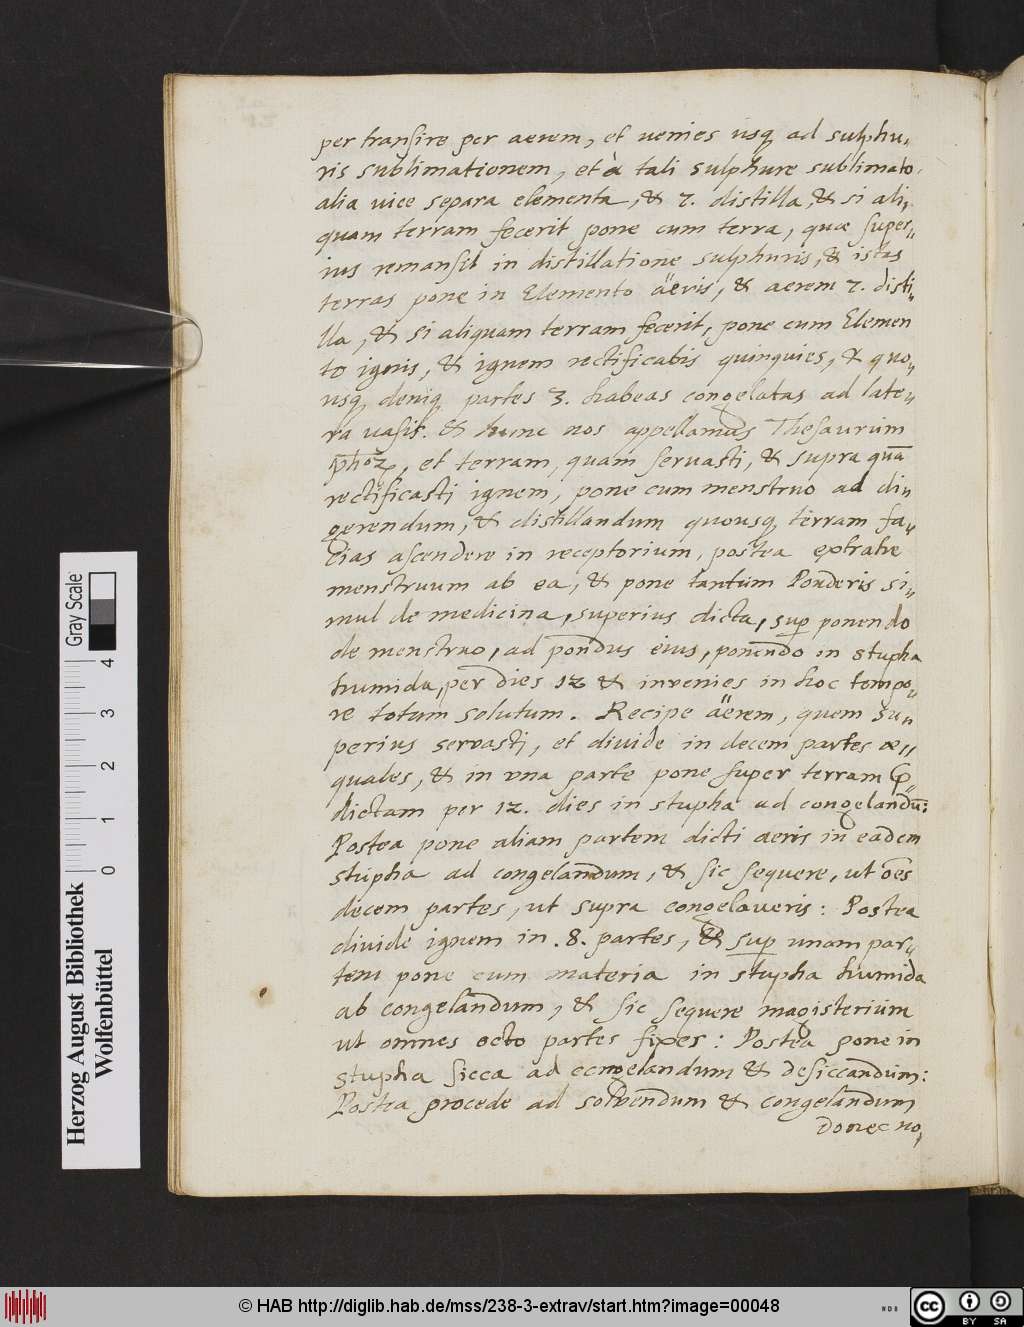 per transire per aerem, et uenies usq ad sulphu„
ris sublimationem, et à tali sulphure sublimato
alia uice separa elementa, & 7. distilla, & si ali„
quam terram fecerit pone cum terra, quæ super„
ius remansit in distillatione sulphuris, & istas
terras pone in Elemento äeris, & aerem 7. disti„
lla, & si aliquam terram fecerit, pone cum Elemen
to ignis, & ignem rectificabis quinquies, & quo„
usq deniq partes 3. habeas congelatas ad late„
ra uasis. & hunc nos appellamus Thesaurum
et terram, quam servasti, & supra quā
rectificasti ignem, pone cum menstruo ad di„
gerendum, & distillandum quousq terram fa„
cias ascendere in receptorium, postea extrahe
menstruum ab ea, & pone tantum Ponderis si„
mul de medicina, superius dicta, sup ponendo
de menstruo, ad pondus eius, ponendo in stupha
humida, per dies 12 & invenies in hoc tempo„
re totum solutum. Recipe äerem, quem su„
perius servasti, et divide in decem partes æ„
quales, & in una parte pone super terram p„
dictam per 12. dies in stupha ad congelandū:
Postea pone aliam partem dicti aeris in eadem
stupha ad congelandum, & sic sequere, ut oēs
decem partes, ut supra congelaveris: Postea
divide ignem in .8. partes, & sup unam par„
tem pone cum materia in stupha humida
ab congelandum, & sic sequere magisterium
ut omnes octo partes fixes: Postea pone in
stupha sicca ad congelandum & desiccandum:
Postea procede ad solvendum & congelandum
donec no„
Herzog August Bibliothek
Wolfenbüttel
Gray Scale
0 1 2 3 4
© HAB http://diglib.hab.de/mss/238-3-extrav/start.htm?image=00048
NDB
cc BY SA